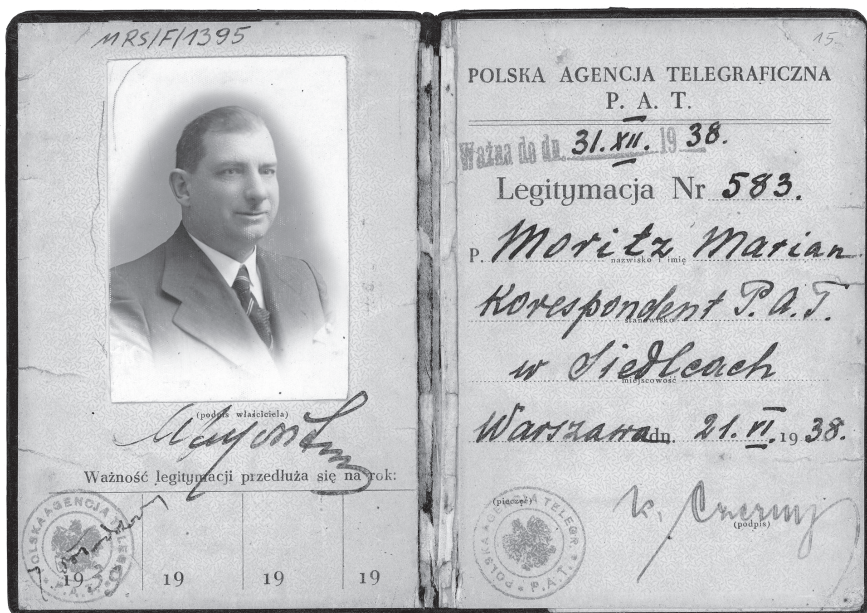 MRS/F/1395
(podpis właściciela)
Ważność legitymacji przedłuża się na rok:
POLSKA AGENCJA TELEGRAFICZNA
P.A.T.
19 19 19 19
15
POLSKA AGENCJA TELEGRAFICZNA
P. A. T.
Ważna do dn. 31. XII. 1938.
Legitymacja Nr 583.
P. Moritz Marian
nazwisko i imię
Korespondent P.A.T.
stanowisko
w Siedlcach
miejscowość
Warszawa dn. 21. VI. 1938.
(pieczęć)
POLSKA AGENCJA TELEGR.
P.A.T.
(podpis)